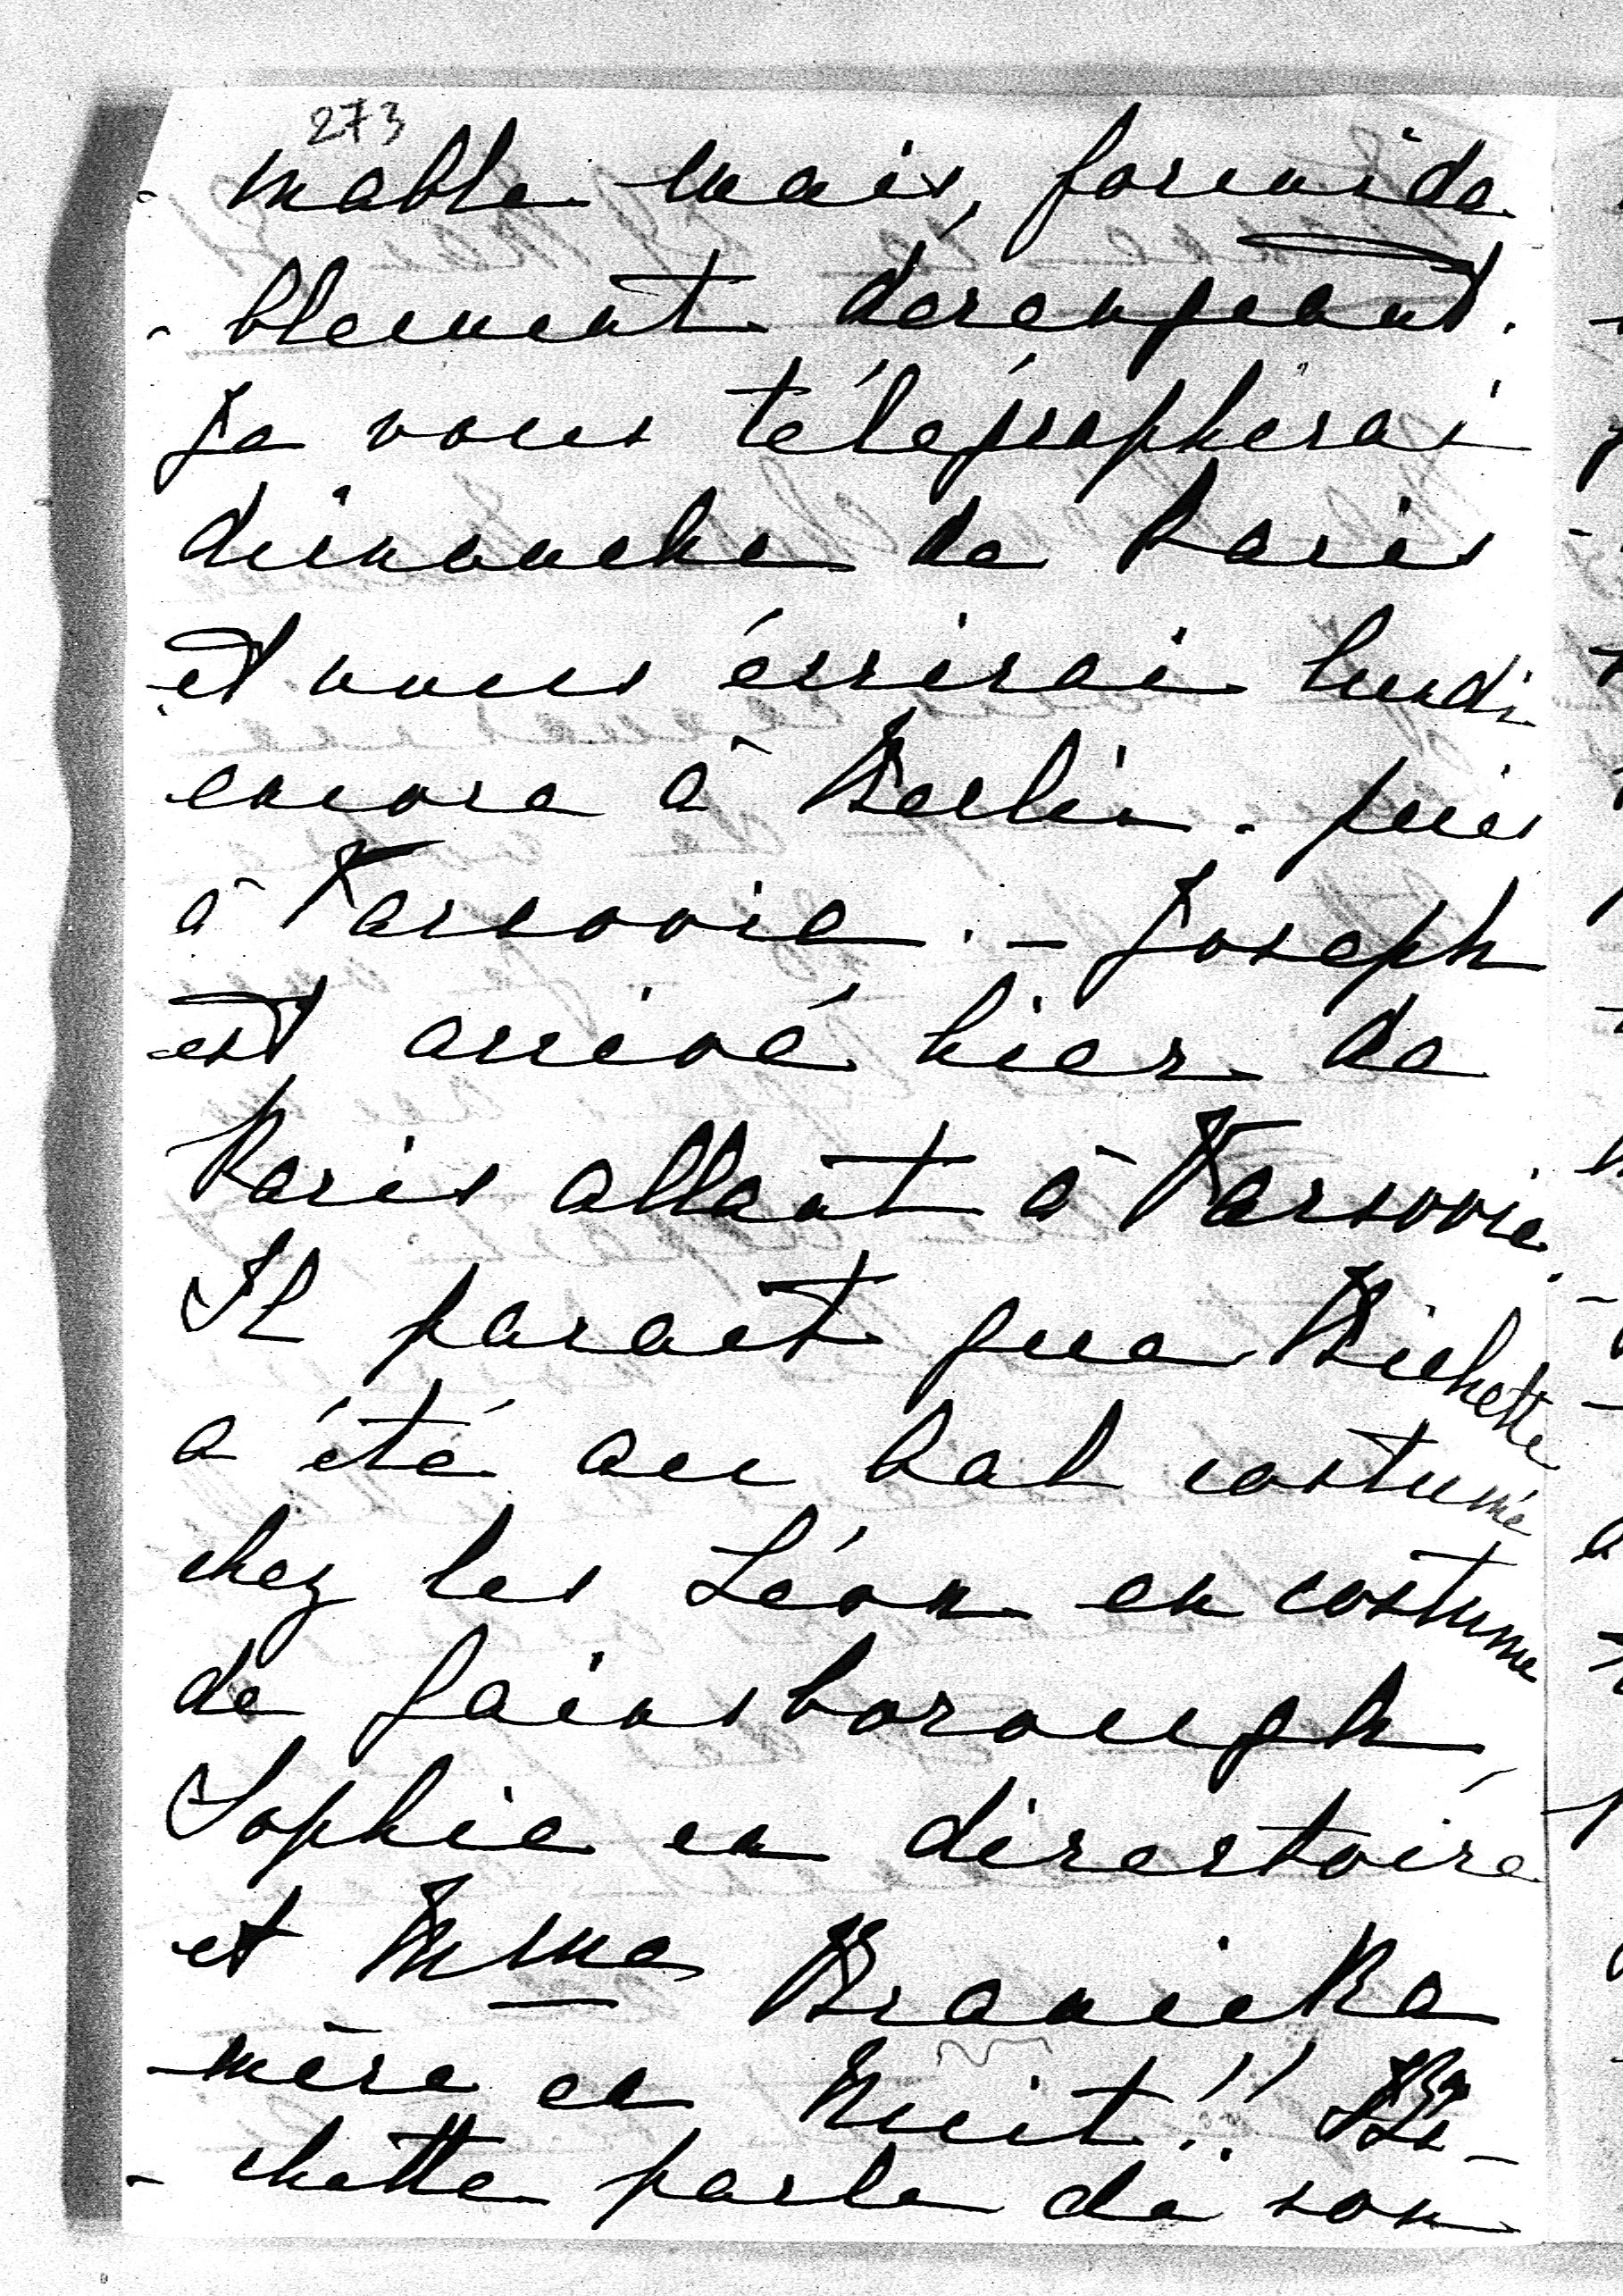 273
- mable mais, formida
- blement dérangeant.
Je vous télégrapherai
dimanche de Paris
et vous écrirai lundi
encore à Berlin. puis
à Varsovie. - Joseph
est arrivé hier de
Paris allant à Varsovie.
Il parait que Bichette
a été au bal costumé
chez les Léon en costume
de Gainsborough,
Sophie en directoire
et Mme Branicka
mère en Nuit!! Bi-
- chette parle de son